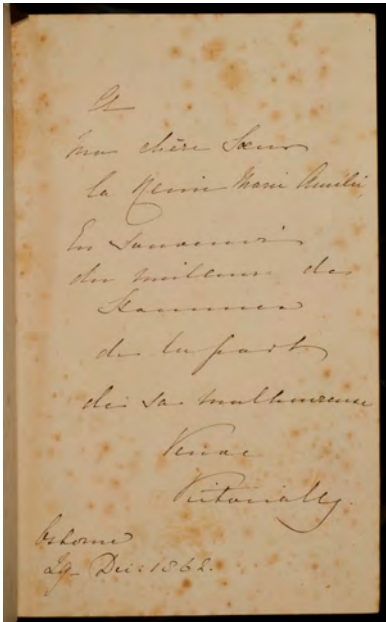 à
ma chère Sœur
la Reine Marie Amélie
En souvenir
du meilleur des
Hommes
de la part
de sa malheureuse
Veuve
Victoria Rg.
Osborne
29 Dec: 1862.